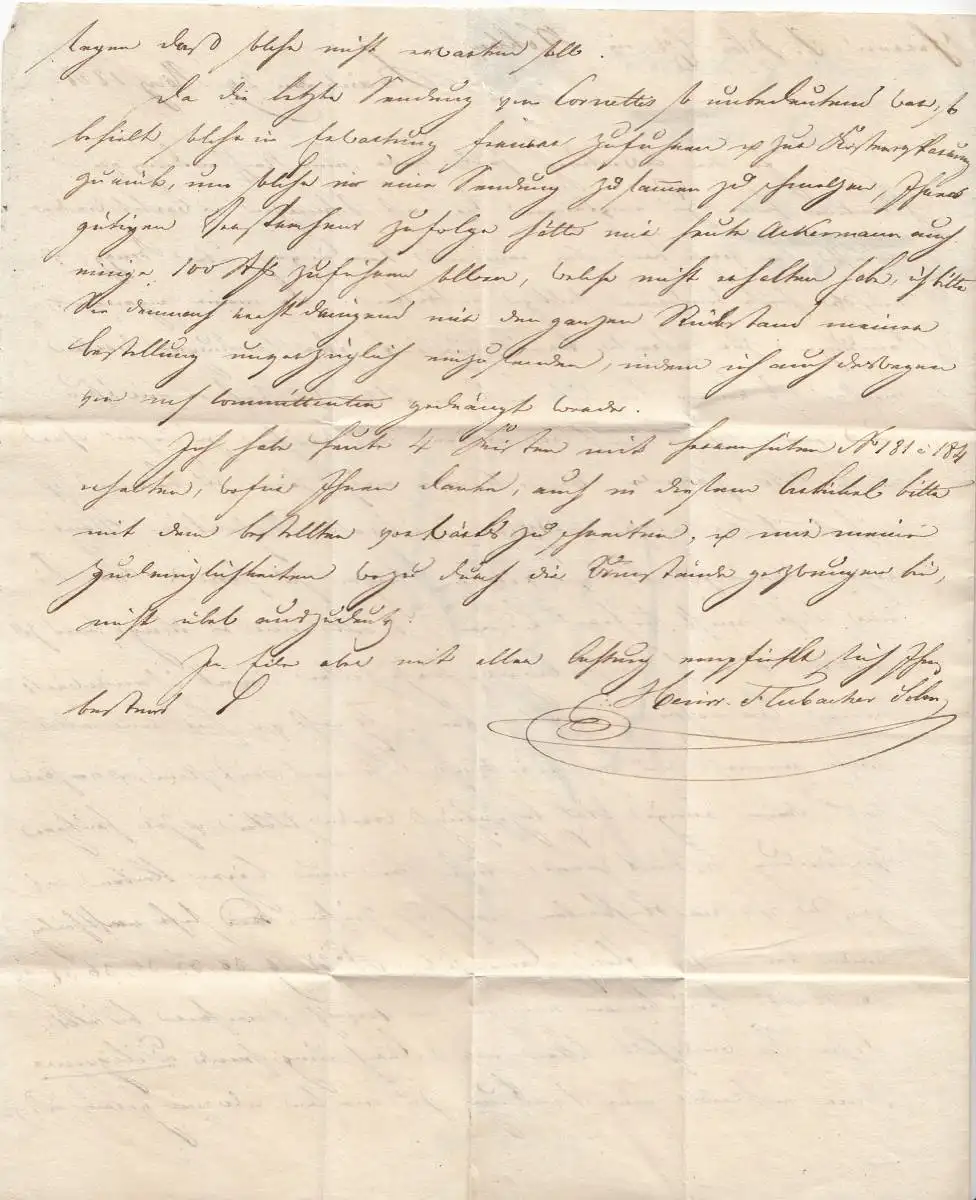 sagen daß solche nicht erwarten soll.
Da die letzte Sendung von Cornettes so unbedeutend war, so
behielt solche in Erwartung fernerer Zufuhren & zur Kostenersparung
zurück, um solche in eine Sendung zusammen zu schmelzen, Ihrem
gütigen Versprechen zufolge hätte mir heute Ackermann auch
einige 100 zuführen sollen, welche nicht erhalten habe, ich bitte
Sie demnach recht dringend mir den ganzen Rückstand meiner
bestellung unverzüglich einzusenden, indem ich auch deswegen
von committenten gedrängt werde.
Ich habe heute 4 Kisten mit N° 181 à 184
erhalten, wofür Ihnen danke, auch in diesem Artickel bitte
mit dem bestellten vorwärts zu schreiten, & mir meine
Zudringlichkeiten wozu durch die Umstände gezwungen bin,
nicht übel auszudeuten.
In Eile aber mit aller Achtung empfiehlt sich Ihnen
bestens
Heinr. Flubacher Sohn